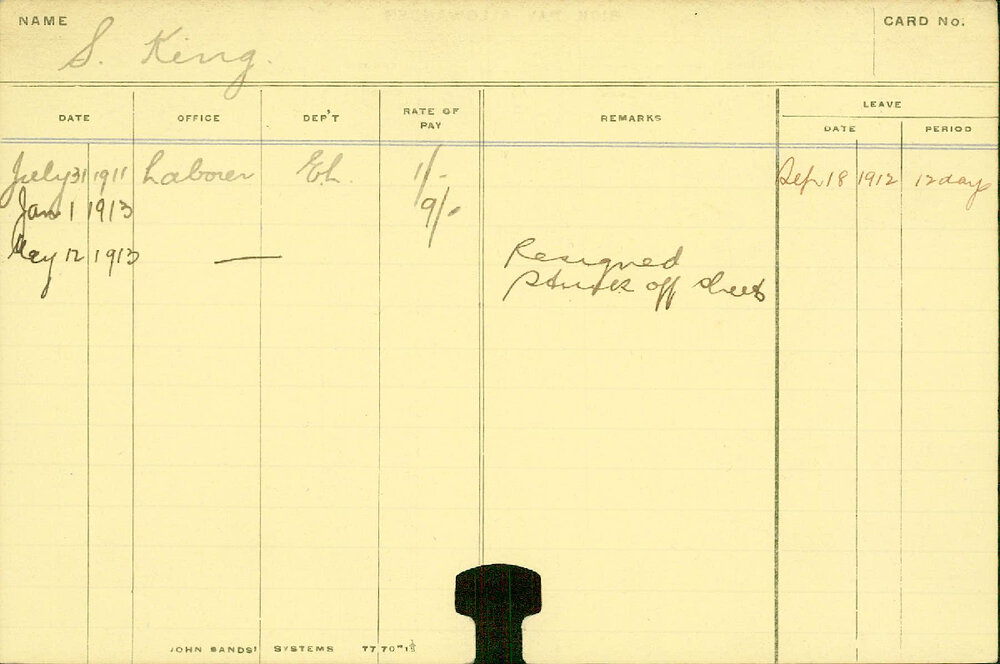 NAME
S. King.
CARD No.
DATE
OFFICE
DEP'T
RATE OF
PAY
REMARKS
LEAVE
DATE
PERIOD
July 31 1911 Laborer 1/- Sep 18 1912 12 days
Jan 1 1913 9/-
May 12 1913 — Resigned
struck off sheets
JOHN SANDS' SYSTEMS